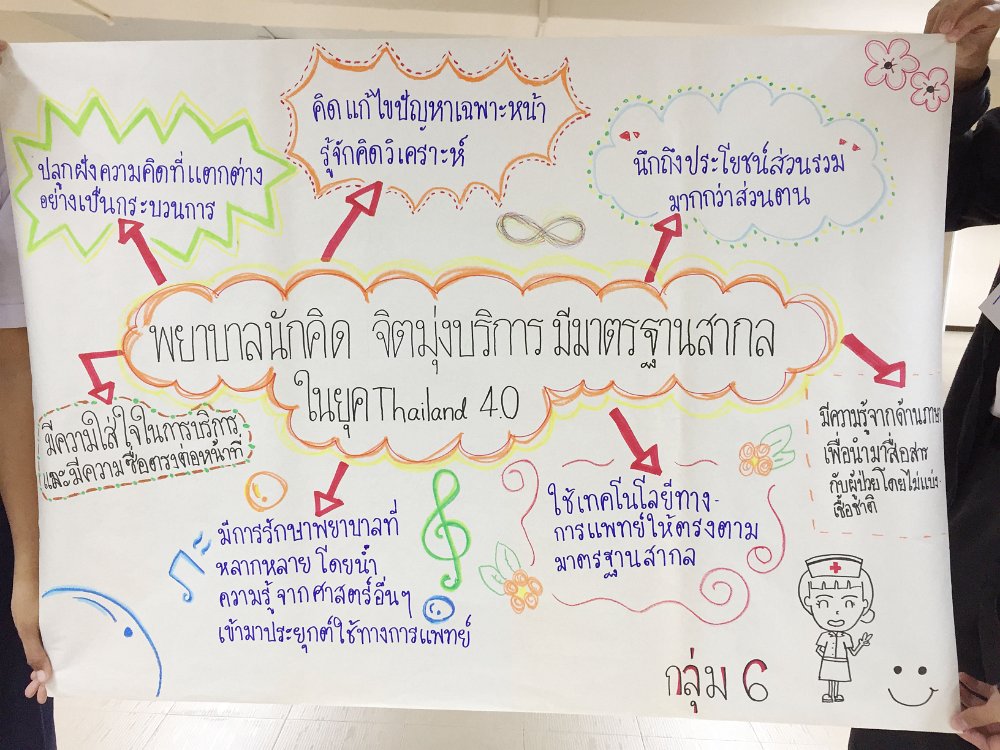 คิด แก้ไขปัญหาเฉพาะหน้า
รู้จักคิดวิเคราะห์
ปลูกฝังความคิดที่แตกต่าง
อย่างเป็นกระบวนการ
นึกถึงประโยชน์ส่วนรวม
มากกว่าส่วนตน
พยาบาลนักคิด จิตมุ่งบริการ มีมาตรฐานสากล
ในยุค Thailand 4.0
มีความใส่ใจในการบริการ
และมีความซื่อตรงต่อหน้าที่
มีการรักษาพยาบาลที่
หลากหลาย โดยนำ
ความรู้ จากศาสตร์อื่นๆ
เข้ามาประยุกต์ใช้ทางการแพทย์
ใช้เทคโนโลยีทาง-
การแพทย์ให้ตรงตาม
มาตรฐานสากล
มีความรู้จากด้านภาษา
เพื่อนำมาสื่อสาร
กับผู้ป่วยโดยไม่แบ่ง-
เชื้อชาติ
กลุ่ม 6